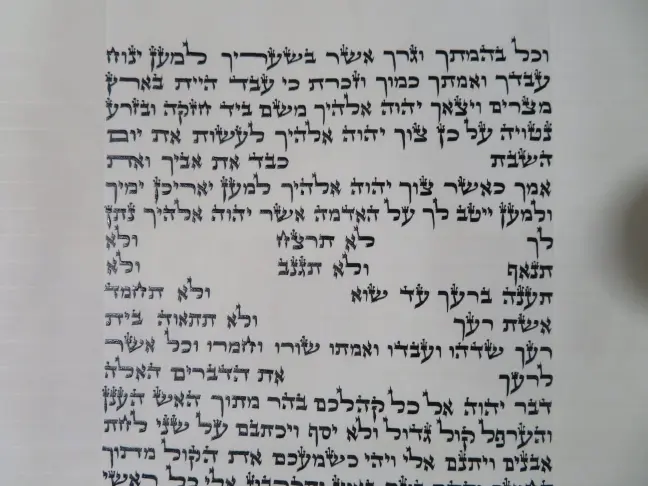 וכל בהמתך וגרך אשר בשעריך למען ינוח
עבדך ואמתך כמוך וזכרת כי עבד היית בארץ
מצרים ויצאך יהוה אלהיך משם ביד חזקה ובזרע
נטויה על כן צוך יהוה אלהיך לעשות את יום
השבת כבד את אביך ואת
אמך כאשר צוך יהוה אלהיך למען יאריכן ימיך
ולמען ייטב לך על האדמה אשר יהוה אלהיך נתן
לך לא תרצח ולא
תנאף ולא תגנב ולא
תענה ברעך עד שוא ולא תחמד
אשת רעך ולא תתאוה בית
רעך שדהו ועבדו ואמתו שורו וחמרו וכל אשר
לרעך את הדברים האלה
דבר יהוה אל כל קהלכם בהר מתוך האש הענן
והערפל קול גדול ולא יסף ויכתבם על שני לחת
אבנים ויתנם אלי ויהי כשמעכם את הקול מתוך